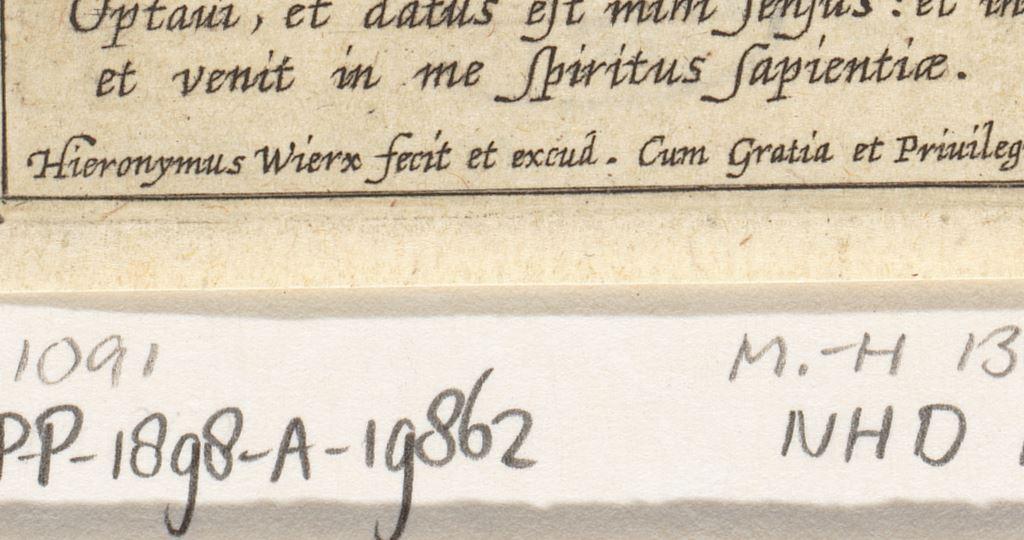 Optaui, et datus eſt mihi ſenſus: et in
et venit in me ſpiritus ſapientiæ.
Hieronymus Wierx fecit et excud. Cum Gratia et Priuileg
1091 M.-H 13
PP-1898-A-19862 NHD